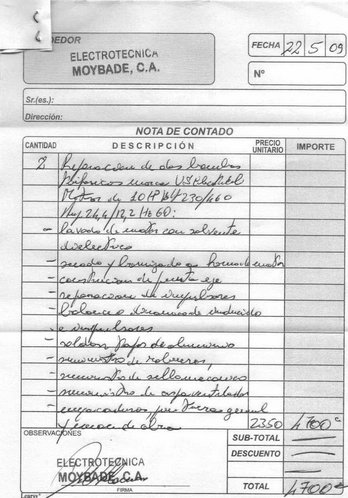 DEDOR
ELECTROTECNICA
MOYBADE, C.A.
FECHA 22 5 09
Nº
Sr.(es.):
Dirección:
NOTA DE CONTADO
CANTIDAD DESCRIPCIÓN PRECIO UNITARIO IMPORTE
2 Reparacion de dos bombas
Motor de 10 HP 230/460
- lavado de motor con solvente
dielectrico
- secado y barnizado horno de motor
- construccion de punta eje
- reparacion de impulsores
- balanceo dinamico de inducido
e impulsores
- soldar tapas de aluminio
- suministro de
- suministro de sello mecanico
- suministro de aspa ventilador
- general
y mano de obra 2350 4700
OBSERVACIONES
SUB-TOTAL
DESCUENTO
ELECTROTECNICA
MOYBADE, C.A.
FIRMA
TOTAL 4700